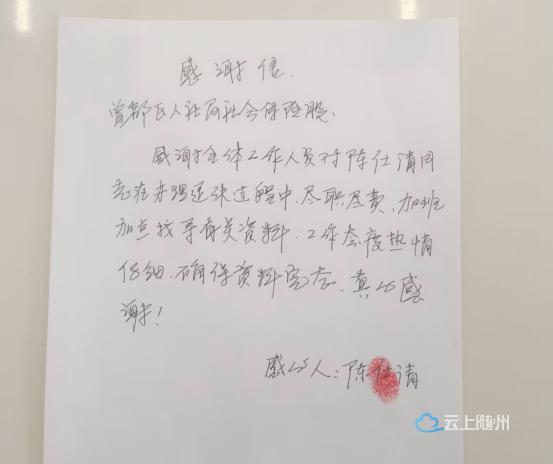 感谢信.
曾都区人社局社会保险股:
感谢全体工作人员对陈仕清同
志在办理退休过程中、尽职尽责、加班
加点找寻有关资料、工作态度热情
仔细、确保资料完存、真心感
谢!
感心人:陈仕清
云上随州